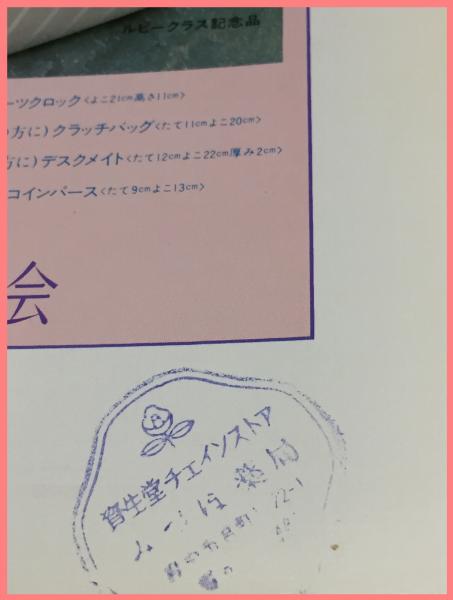 ルビークラス記念品
ーツクロック〈よこ21cm高さ11cm〉
方に)クラッチバッグ〈たて11cmよこ20cm〉
方に)デスクメイト〈たて12cmよこ22cm厚み2cm〉
コインパース〈たて9cmよこ13cm〉
会
資生堂チェインストア
薬局
72-1